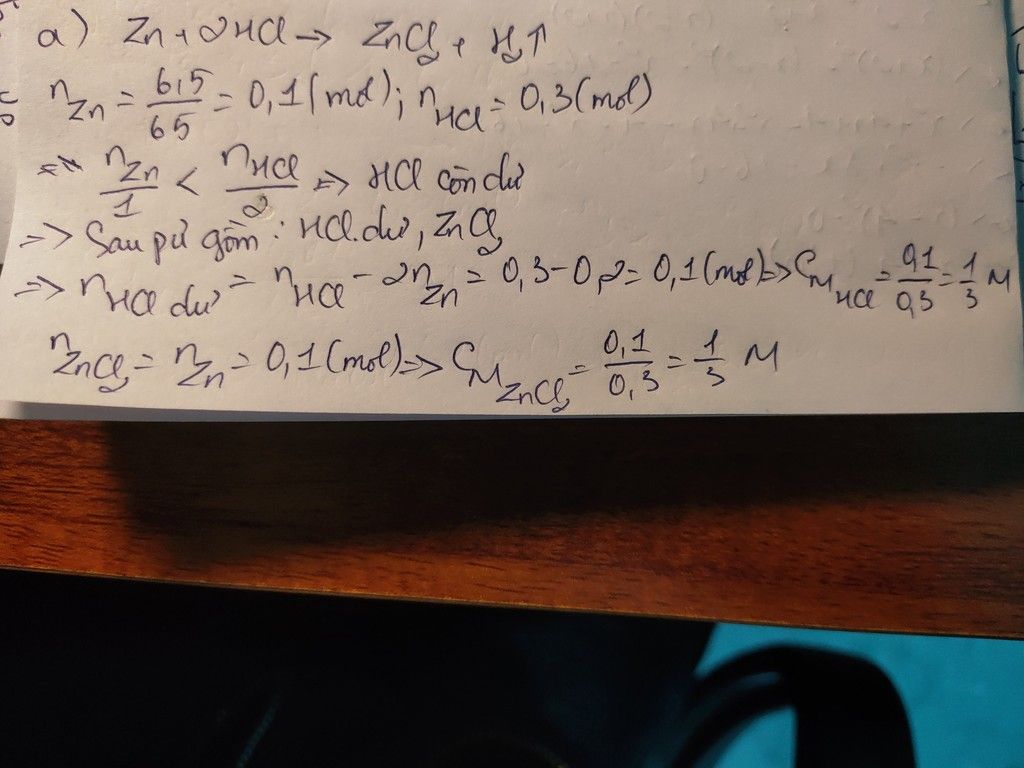 a) Zn + 2HCl → ZnCl₂ + H₂↑
n_Zn = 6,5/65 = 0,1 (mol); n_HCl = 0,3 (mol)
n_Zn/1 < n_HCl/2 => HCl còn dư
=> Sau pứ gồm: HCl dư, ZnCl₂
=> n_HCl dư = n_HCl - 2n_Zn = 0,3 - 0,2 = 0,1 (mol) => C_M HCl = 0,1/0,3 = 1/3 M
n_ZnCl₂ = n_Zn = 0,1 (mol) => C_M ZnCl₂ = 0,1/0,3 = 1/3 M